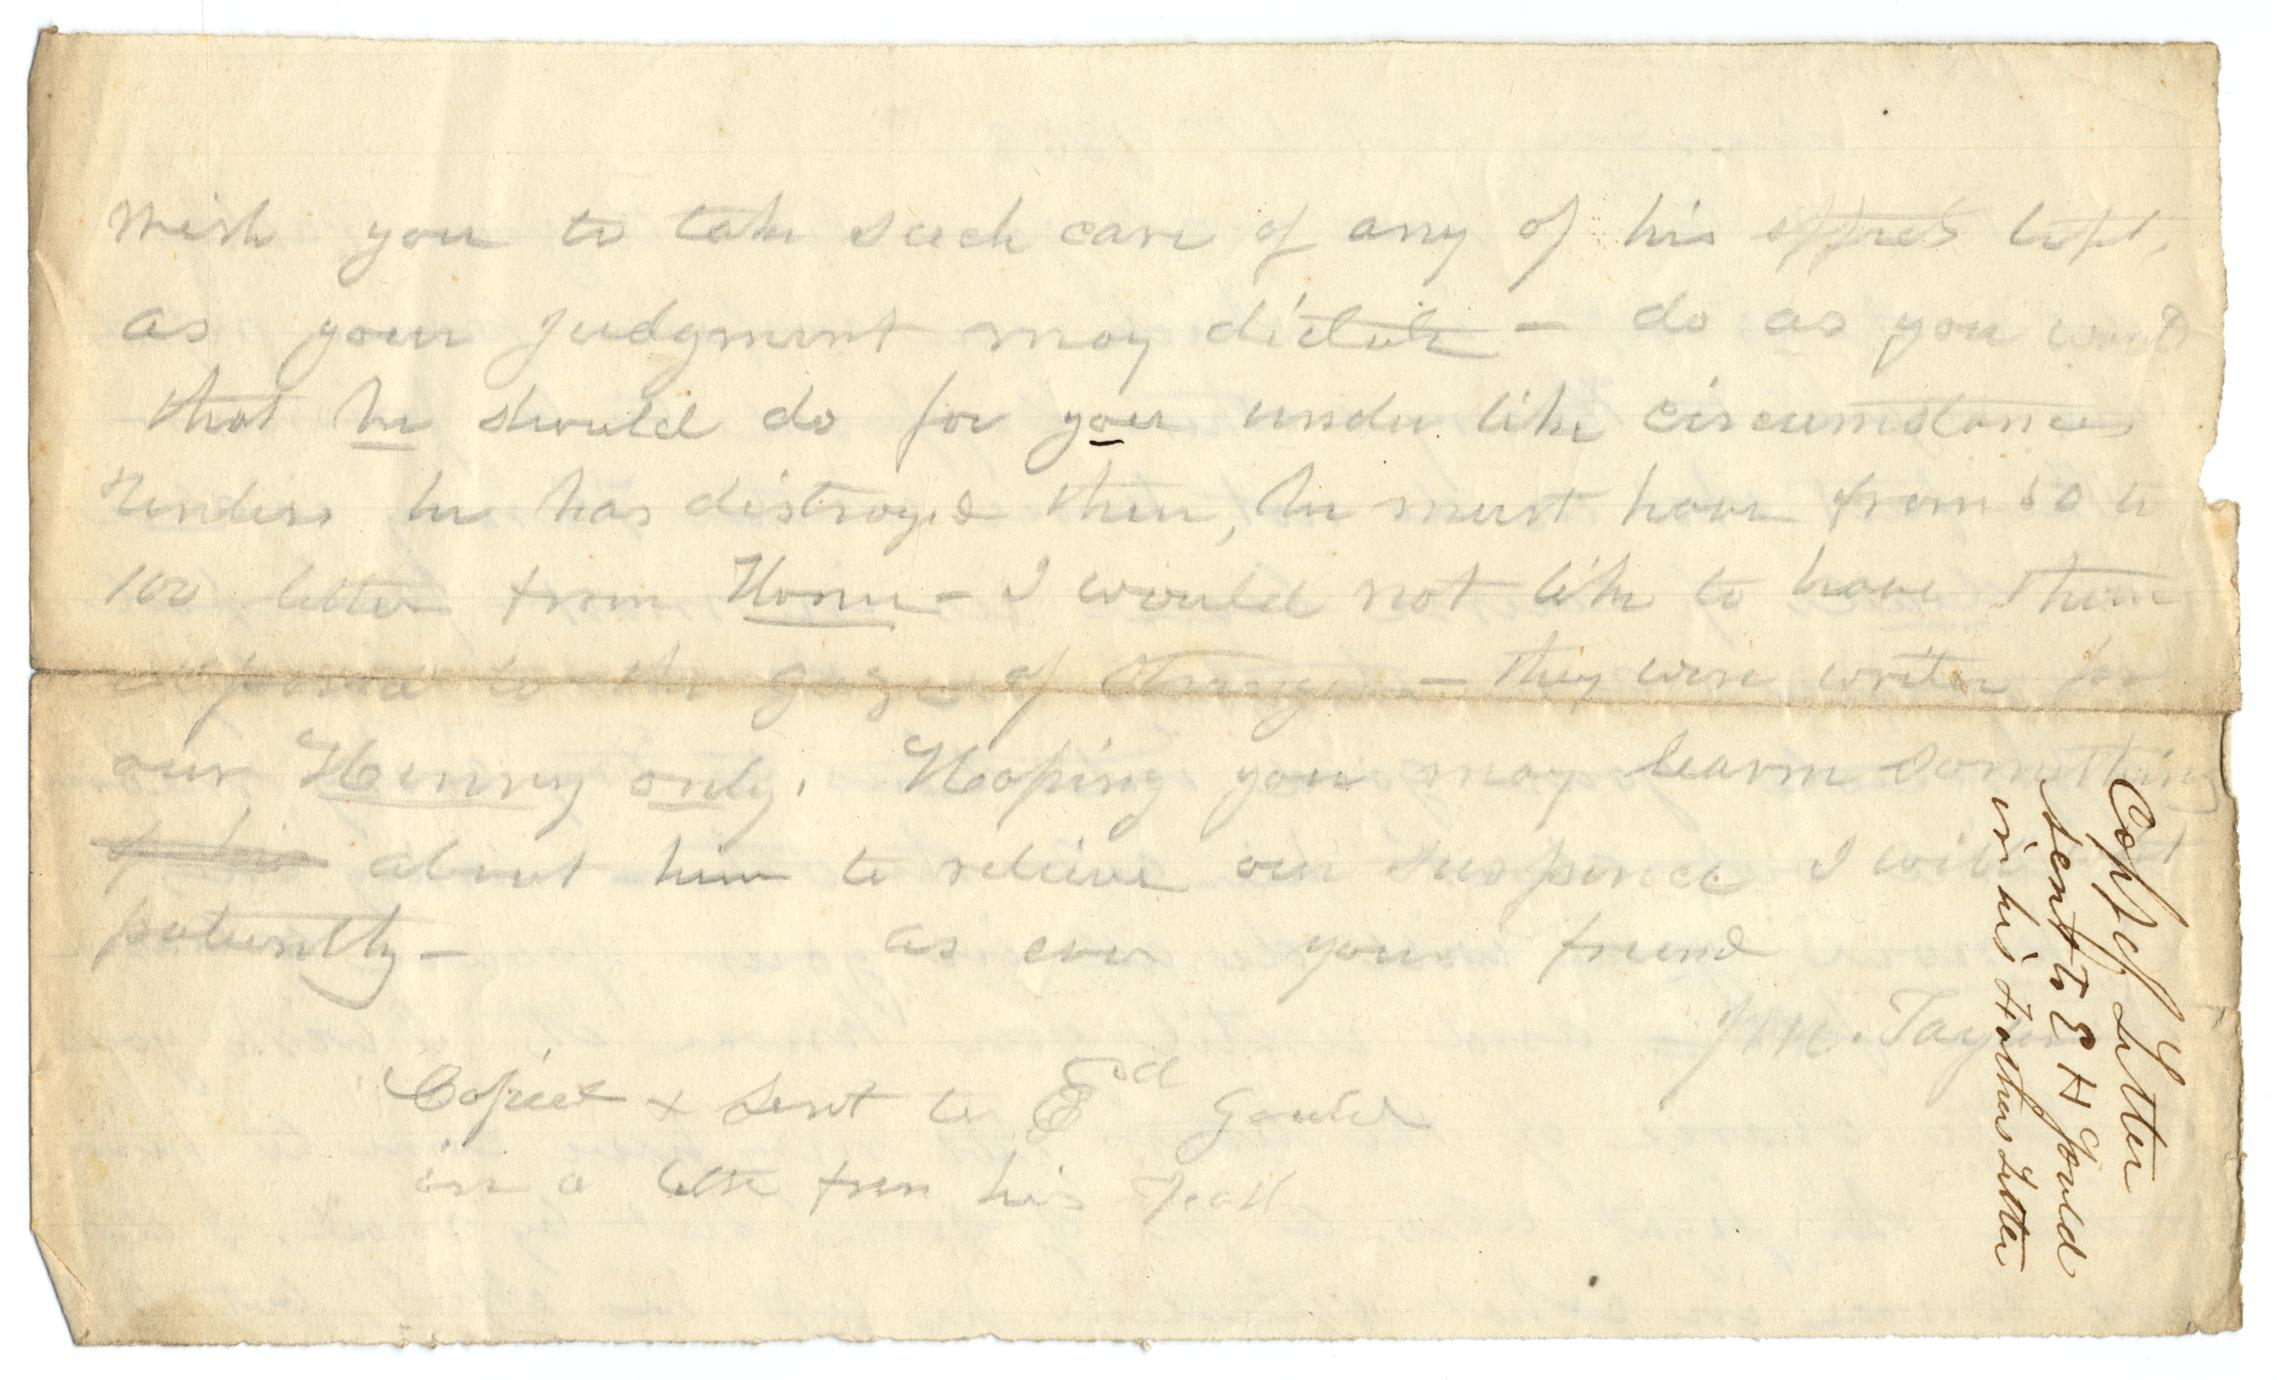 wish you to take such care of any of his effects left,
as your judgment may dictate - do as you would
that he should do for you under like circumstances
Unless he has distroyed them, he must have from 50 to
100 letter from Home - I would not like to have them
exposed to the gaze of strangers - they were writen for
our Henry only. Hoping you may learn something
of his about him to relieve our suspence I will
patiently - as ever your friend
J M. Taylor
Copied & sent to Ed Gould
in a letter from his
Copy of Letter
sent to E H Gould
in his Fathers Letter